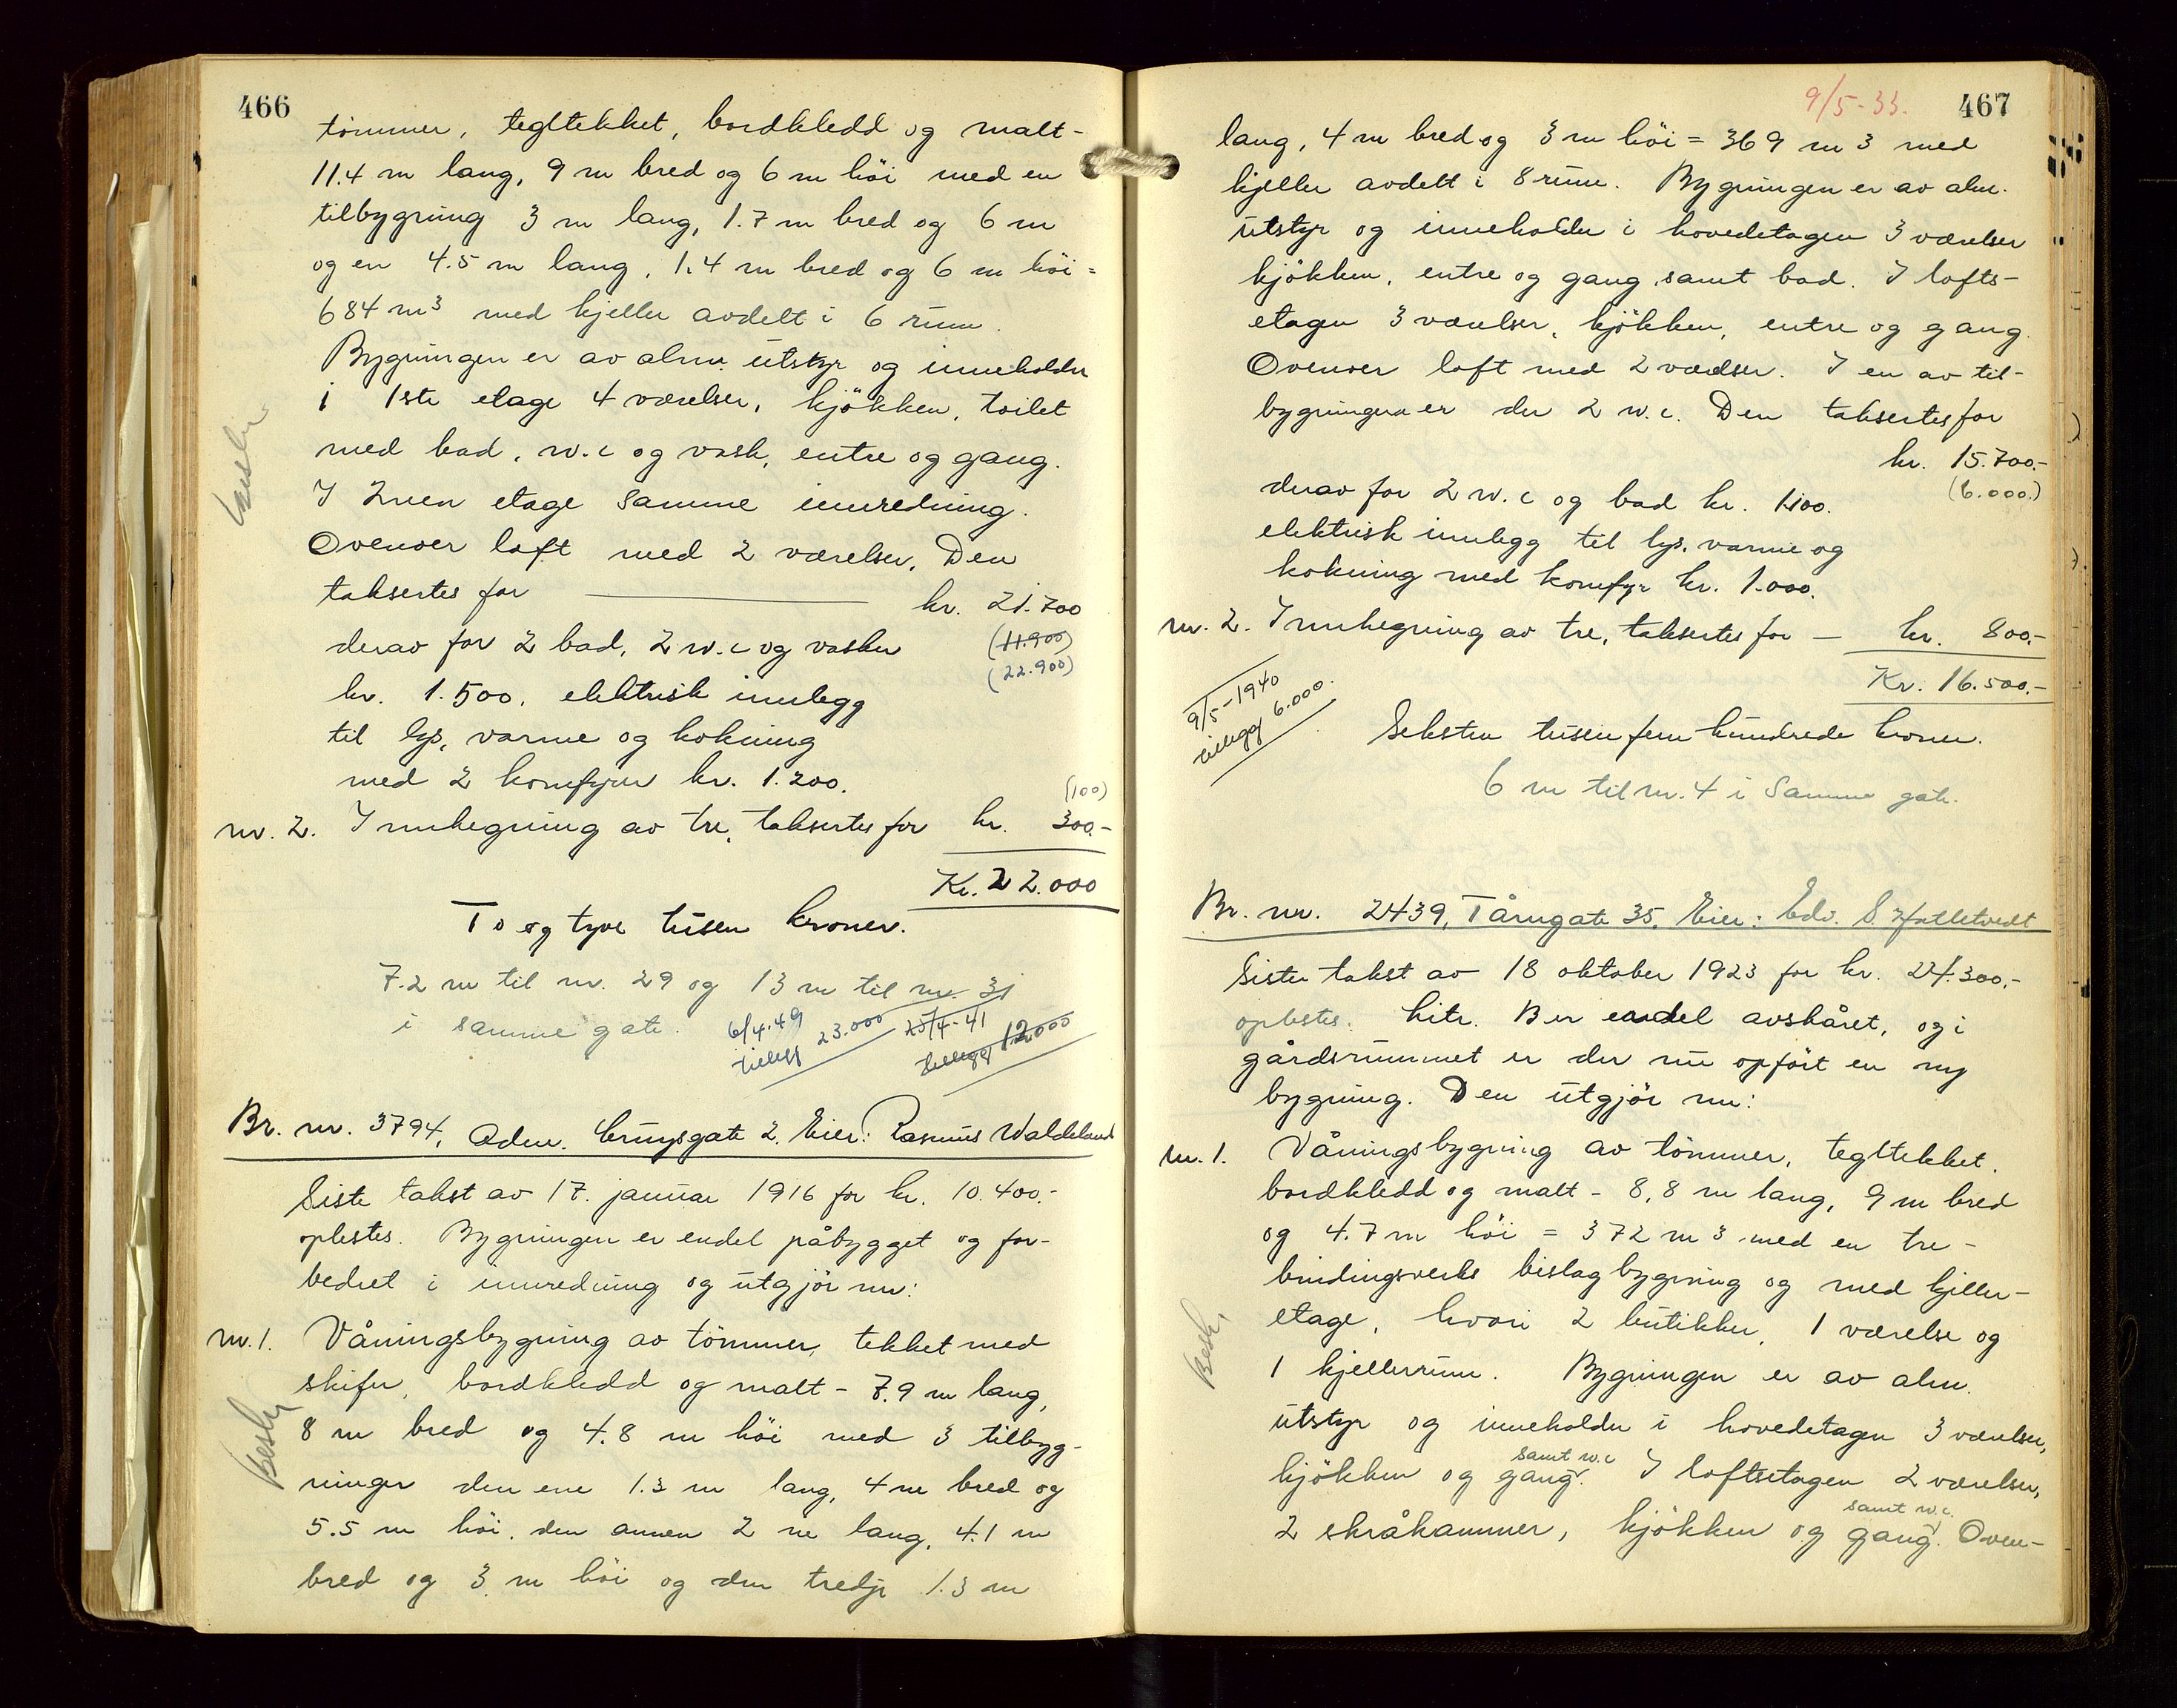 466
tömmer, tegltekket, bordkledd og malt-
11.4 m lang, 9 m bred og 6 m höi med en
tilbygning 3 m lang, 1.7 m bred og 6 m
og en 4.5 m lang, 1.4 m bred og 6 m höi =
684 m3 med kjeller avdelt i 6 rum.
Bygningen er av alm. utstyr og inneholder
i 1ste etage 4 værelser, kjökken, toilet
med bad, w.c og vask, entre og gang.
I 2nen etage samme innredning.
Ovenver loft med 2 værelser. Den
taksertes for kr. 21.700
derav for 2 bad, 2 w.c og vasker (11.900)
(22.900)
kr. 1.500. elektrisk innlegg
til lys, varme og kokning
med 2 komfyrer kr. 1.200.
(100)
nr. 2. Innhegning av tre, taksertes for kr. 300.-
Kr. 22.000
To og tyve tusen kroner.
7.2 m til nr. 29 og 13 m til nr. 31
i samme gate.
6/4.49 tillegg 23.000
25/4-41 tillegg 12000
Br. nr. 3794, Adm. Cruysgate 2. Eier: Rasmus Waldeland
Siste takst av 17. januar 1916 for kr. 10.400.-
oplestes. Bygningen er endel påbygget og for-
bedret i innredning og utgjör nu:
nr. 1. Våningsbygning av tömmer, tekket med
skifer, bordkledd og malt - 7.9 m lang,
Besk.
8 m bred og 4.8 m höi med 3 tilbyg-
ninger den ene 1.3 m lang, 4 m bred og
5.5 m höi, den annen 2 m lang, 4.1 m
bred og 3 m höi og den tredje 1.3 m
9/5-33. 467
lang, 4 m bred og 3 m höi = 369 m3 med
kjeller avdelt i 8 rum. Bygningen er av alm.
utstyr og inneholder i hovedetagen 3 værelser
kjökken, entre og gang, samt bad. I lofts-
etagen 3 værelser, kjökken, entre og gang.
Ovenver loft med 2 værelser. I en av til-
bygningene er der 2 w.c. Den taksertes for
kr. 15.700.-
(6.000.)
derav for 2 w.c og bad kr. 1.100.
elektrisk innlegg til lys, varme og
kokning med komfyr kr. 1.000.
nr. 2. Innhegning av tre, taksertes for - kr. 800.-
Kr. 16.500.-
9/5-1940
tillegg 6.000.
Seksten tusen fem hundrede kroner.
6 m til nr. 4 i samme gate.
Br. nr. 2439, Tårngate 35. Eier: Edv. S. Hatletvedt
Siste takst av 18 oktober 1923 for kr. 24.300.-
oplestes. Litr. B er endel avskåret, og i
gårdsrummet er der nu opfört en ny
bygning. Den utgjör nu:
nr. 1. Våningsbygning av tömmer, tegltekket,
bordkledd og malt - 8,8 m lang, 9 m bred
og 4.7 m höi = 372 m3 med en tre-
bindingsverks bislagbygning og med kjeller-
etage, hvori 2 butikker, 1 værelse og
Besk.
1 kjellerrum. Bygningen er av alm.
utstyr og inneholder i hovedetagen 3 værelser,
samt w.c
kjökken og gang. I loftsetagen 2 værelser,
samt w.c.
2 skråkammer, kjökken og gang. Oven-